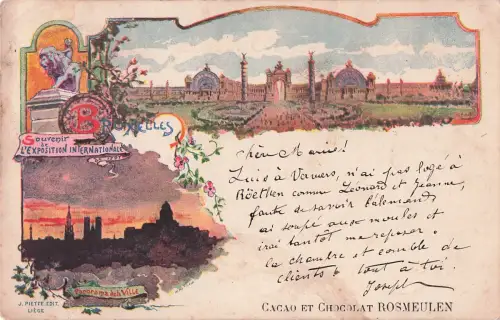 BRUXELLES
Souvenir
de
L'EXPOSITION INTERNATIONALE
DE 1897
Panorama de la Ville
J. PIETTE EDIT.
LIÈGE
Chère Maria!
Suis à Verviers, n'ai pas logé à
comme Léonard et Jeanne,
faute de savoir
ai soupé aux moules et
irai tantôt me reposer.
la chambre est comble de
clients. tout à toi.
Joseph
CACAO ET CHOCOLAT ROSMEULEN